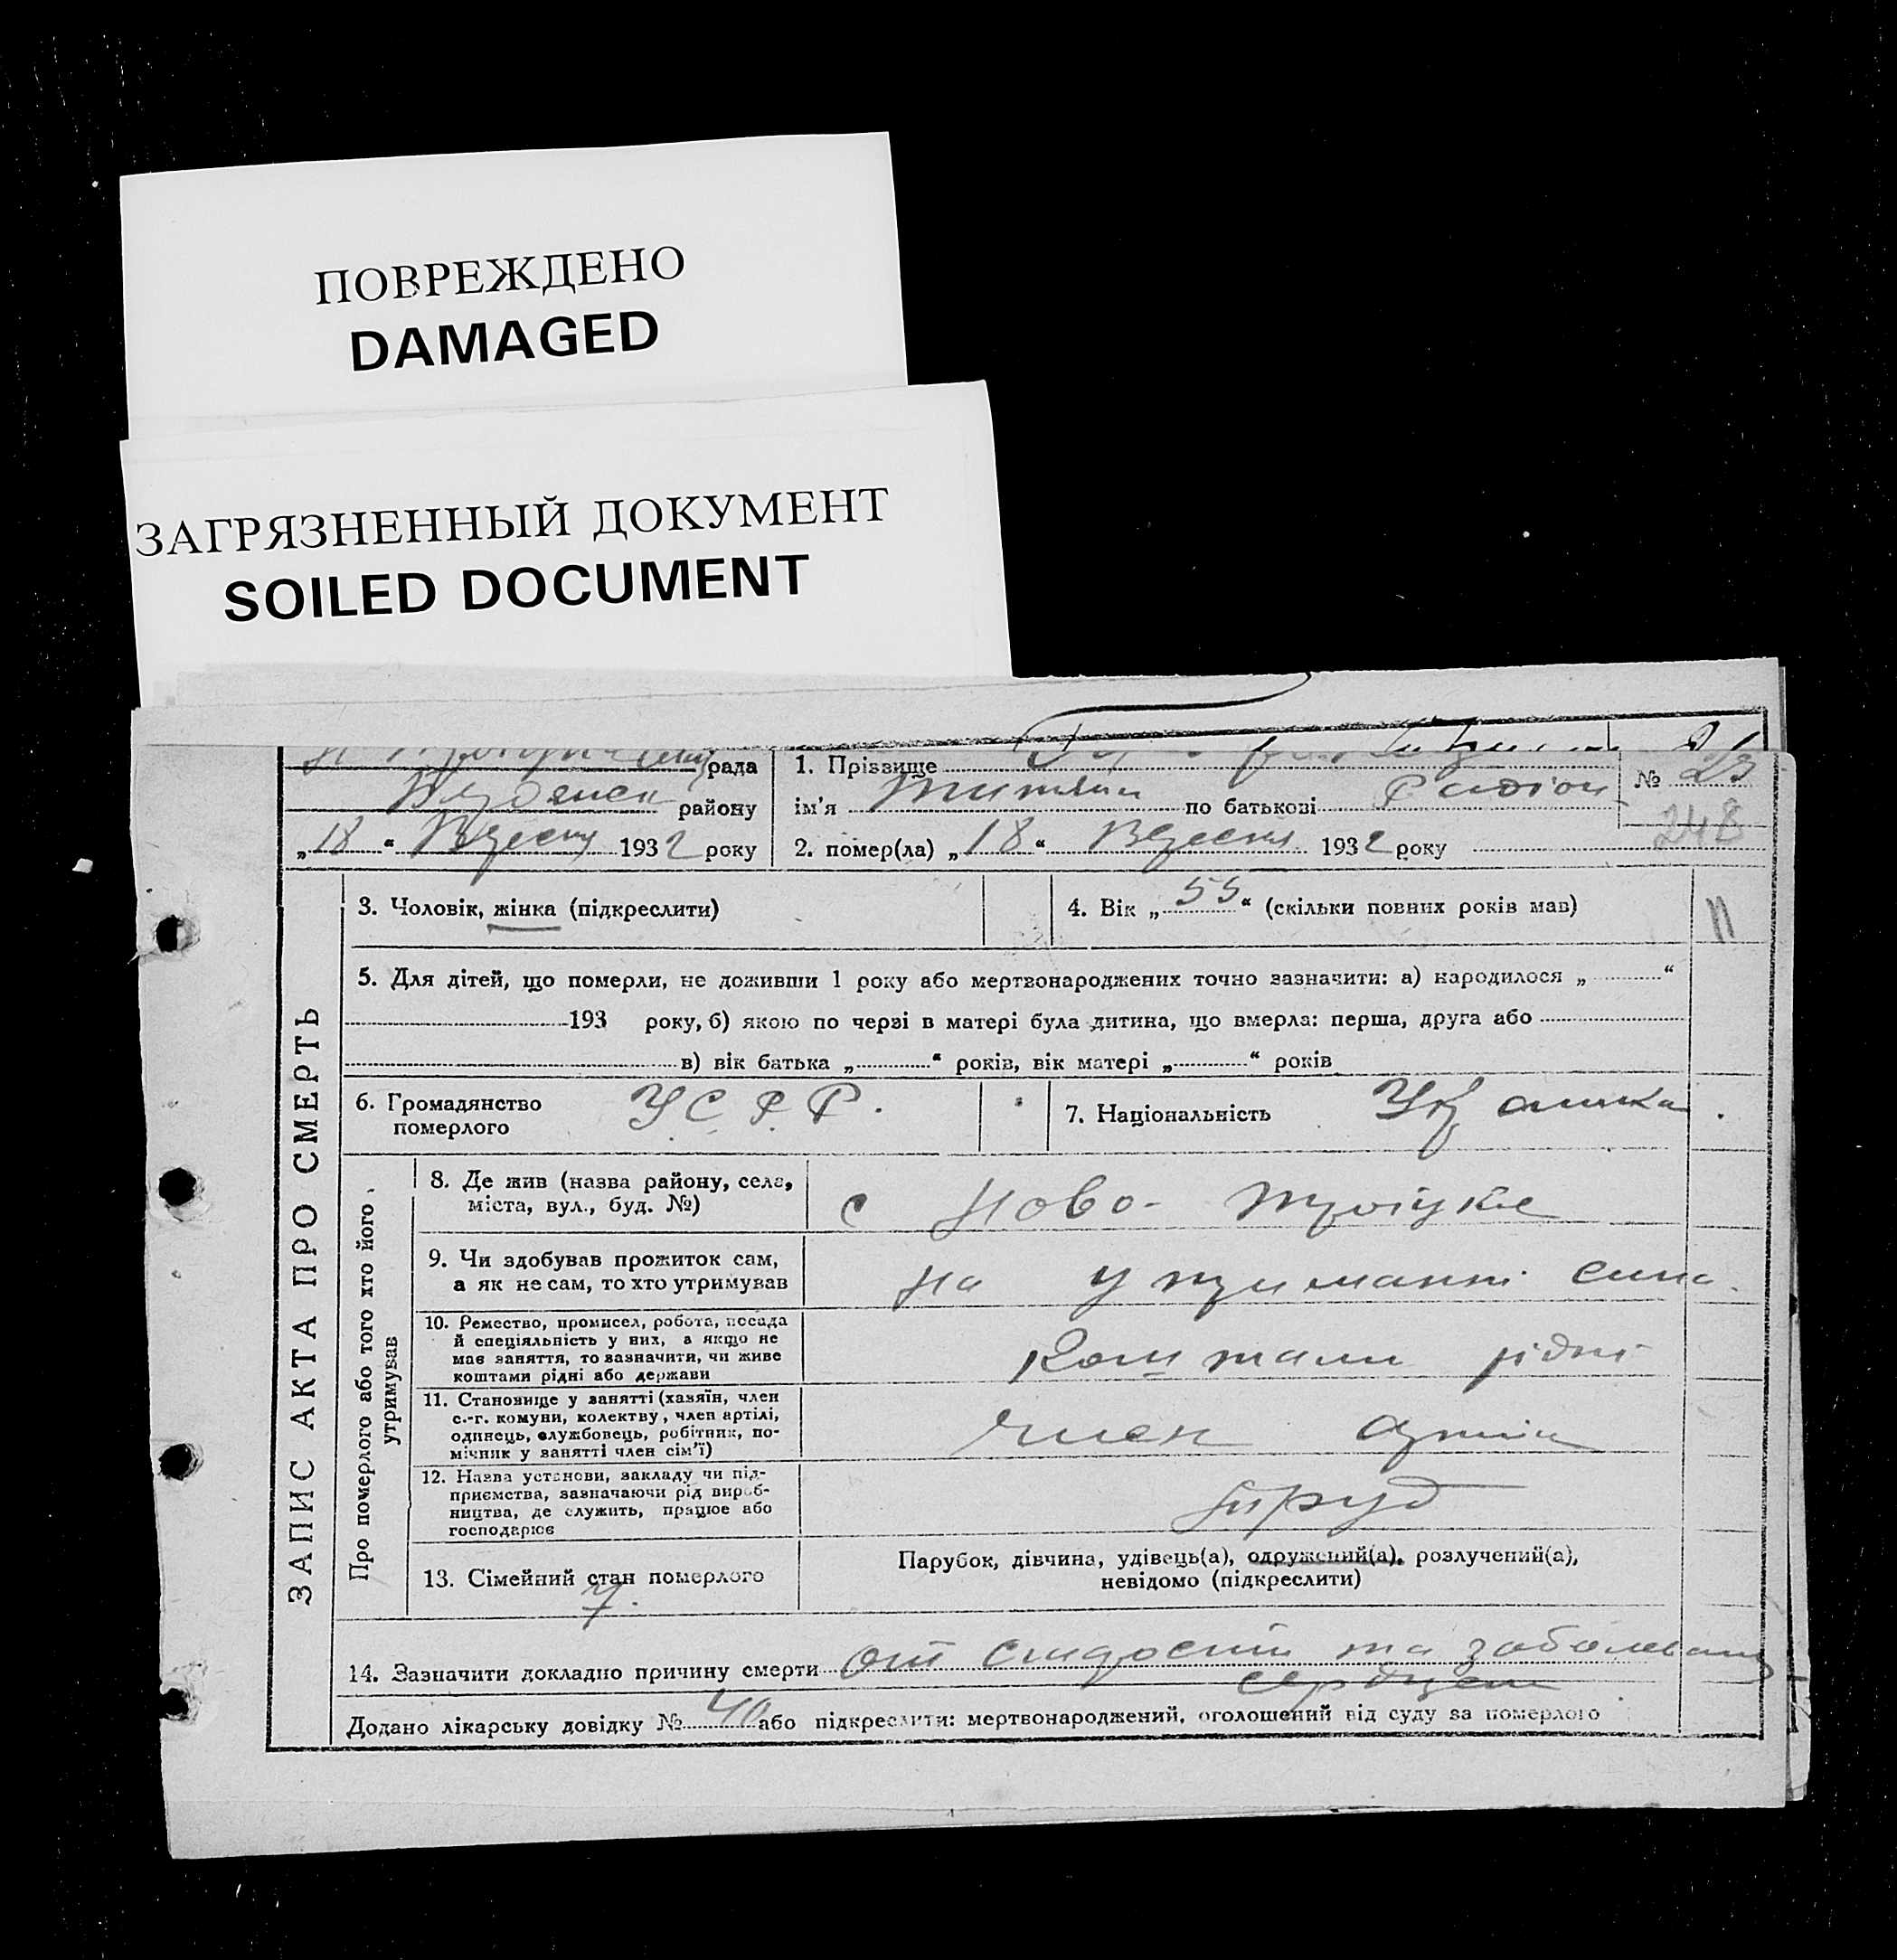 ПОВРЕЖДЕНО
DAMAGED
ЗАГРЯЗНЕННЫЙ ДОКУМЕНТ
SOILED DOCUMENT
рада
району
„18“ Вересня 1932 року
1. Прізвище
ім'я по батькові Радіон
2. помер(ла) „18“ Вересня 1932 року
№ 23
248
ЗАПИС АКТА ПРО СМЕРТЬ
3. Чоловік, жінка (підкреслити)
4. Вік „55“ (скільки повних років мав)
11
5. Для дітей, що померли, не доживши 1 року або мертвонароджених точно зазначити: а) народилося „ “
193 року, б) якою по черзі в матері була дитина, що вмерла: перша, друга або
в) вік батька „ “ років, вік матері „ “ років
6. Громадянство
померлого
УСРР.
7. Національність
Про померлого або того хто його
утримував
8. Де жив (назва району, села,
міста, вул., буд. №)
с Ново-Троїцке
9. Чи здобував прожиток сам,
а як не сам, то хто утримував
на утриманні сина.
10. Ремество, промисел, робота, посада
й спеціяльність у них, а якщо не
має заняття, то зазначити, чи живе
коштами рідні або держави
Коштами рідні
11. Становище у занятті (хазяїн, член
с.-г. комуни, колектву, член артілі,
одинець, службовець, робітник, по-
мічник у занятті член сім'ї)
член артіли
12. Назва установи, закладу чи під-
приємства, зазначаючи рід вироб-
ництва, де служить, працює або
господарює
13. Сімейний стан померлого
7.
Парубок, дівчина, удівець(а), одружений(а), розлучений(а),
невідомо (підкреслити)
14. Зазначити докладно причину смерти от старости та
Додано лікарську довідку № 40 або підкреслити: мертвонароджений, оголошений від суду за померлого